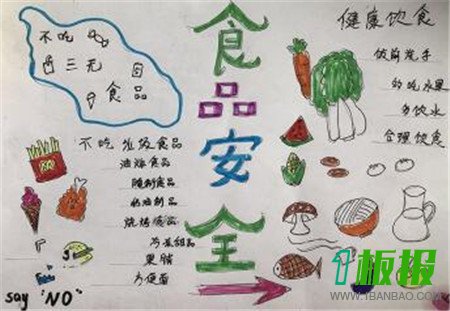 不吃
三无
食品
食品安全
健康饮食
饭前洗手
勿吃水果
多饮水
合理饮食
不吃垃圾食品
油炸食品
腌制食品
奶油制品
烧烤食品
果脯
方便面
say "NO"
1板报
WWW.1BANBAO.COM